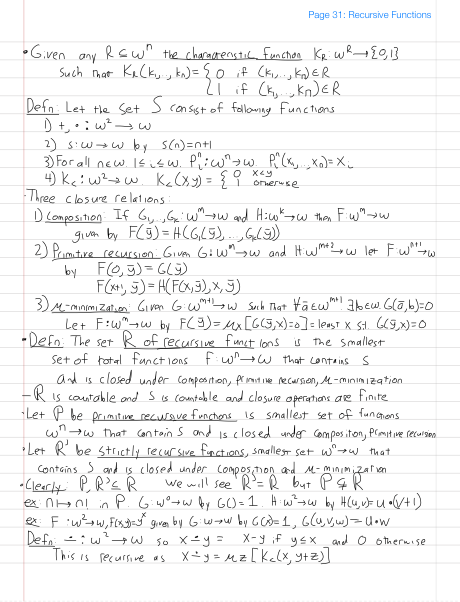 Page 31: Recursive Functions
• Given any R ⊆ ω^n the characteristic function K_R: ω^R → {0,1}
such that K_R(k_1,..., k_n) = { 0 if (k_1,..., k_n) ∈ R
{ 1 if (k_1,..., k_n) ∈ R
Defn: Let the set S consist of following functions
1) +, • : ω² → ω
2) s: ω → ω by s(n)=n+1
3) For all n∈ω. 1≤i≤ω. P_i^n: ω^n → ω. P_i^n(x_1,..., x_n) = x_i
4) K_<: ω² → ω. K_<(x,y) = { 0 x<y
1 otherwise
• Three closure relations:
1) Composition: If G_1,..., G_k: ω^m → ω and H: ω^k → ω then F: ω^m → ω
given by F(ȳ) = H(G_1(ȳ),..., G_k(ȳ))
2) Primitive recursion: Given G: ω^m → ω and H: ω^{m+2} → ω let F: ω^{n+1} → ω
by F(0, ȳ) = G(ȳ)
F(x+1, ȳ) = H(F(x,ȳ), x, ȳ)
3) μ-minimization: Given G: ω^{m+1} → ω such that ∀ā∈ω^{m+1} ∃b∈ω. G(ā,b)=0
Let F: ω^m → ω by F(ȳ) = μx[G(ȳ,x)=0] = least x st. G(ȳ,x)=0
• Defn: The set R of recursive functions is the smallest
set of total functions f: ω^n → ω that contains S
and is closed under composition, primitive recursion, μ-minimization
– R is countable and S is countable and closure operations are finite
• Let P be primitive recursive functions is smallest set of functions
ω^n → ω that contain S and is closed under composition, primitive recursion
• Let R' be strictly recursive functions, smallest set ω^n → ω that
contains S and is closed under composition and μ-minimization
• Clearly: P, R' ⊆ R we will see R' = R but P ⊊ R
ex: n ↦ n! in P. G: ω⁰ → ω by G()=1. H: ω² → ω by H(u,v) = u•(v+1)
ex: F: ω² → ω, F(x,y)=y^x given by G: ω → ω by G(x)=1, G(u,v,w) = u•w
Defn: ∸: ω² → ω so x∸y = x-y if y≤x and 0 otherwise
This is recursive as x∸y = μz[K_<(x, y+z)]